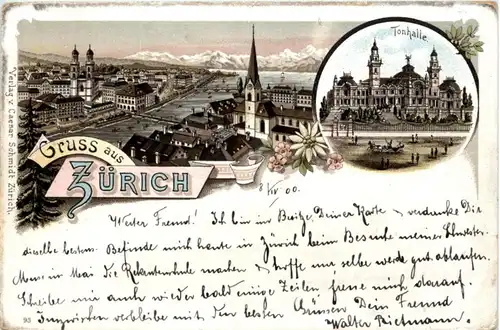 Tonhalle
Verlag v. Caesar Schmidt Zürich.
Gruss aus
ZÜRICH
8/IV 00.
Werter Freund! Ich bin im Besitze Deiner Karte & verdanke Dir
dieselbe bestens. Befinde mich heute in Zürich beim Besuche meines Schwester.
Muss im Mai die Rekrutenschule machen & hoffe nur selbe werde gut ablaufen.
Schreibe mir auch wieder bald einige Zeilen, freue mich darauf.
Inzwischen verbleibe mit den besten Grüssen Dein Freund
Walter
95